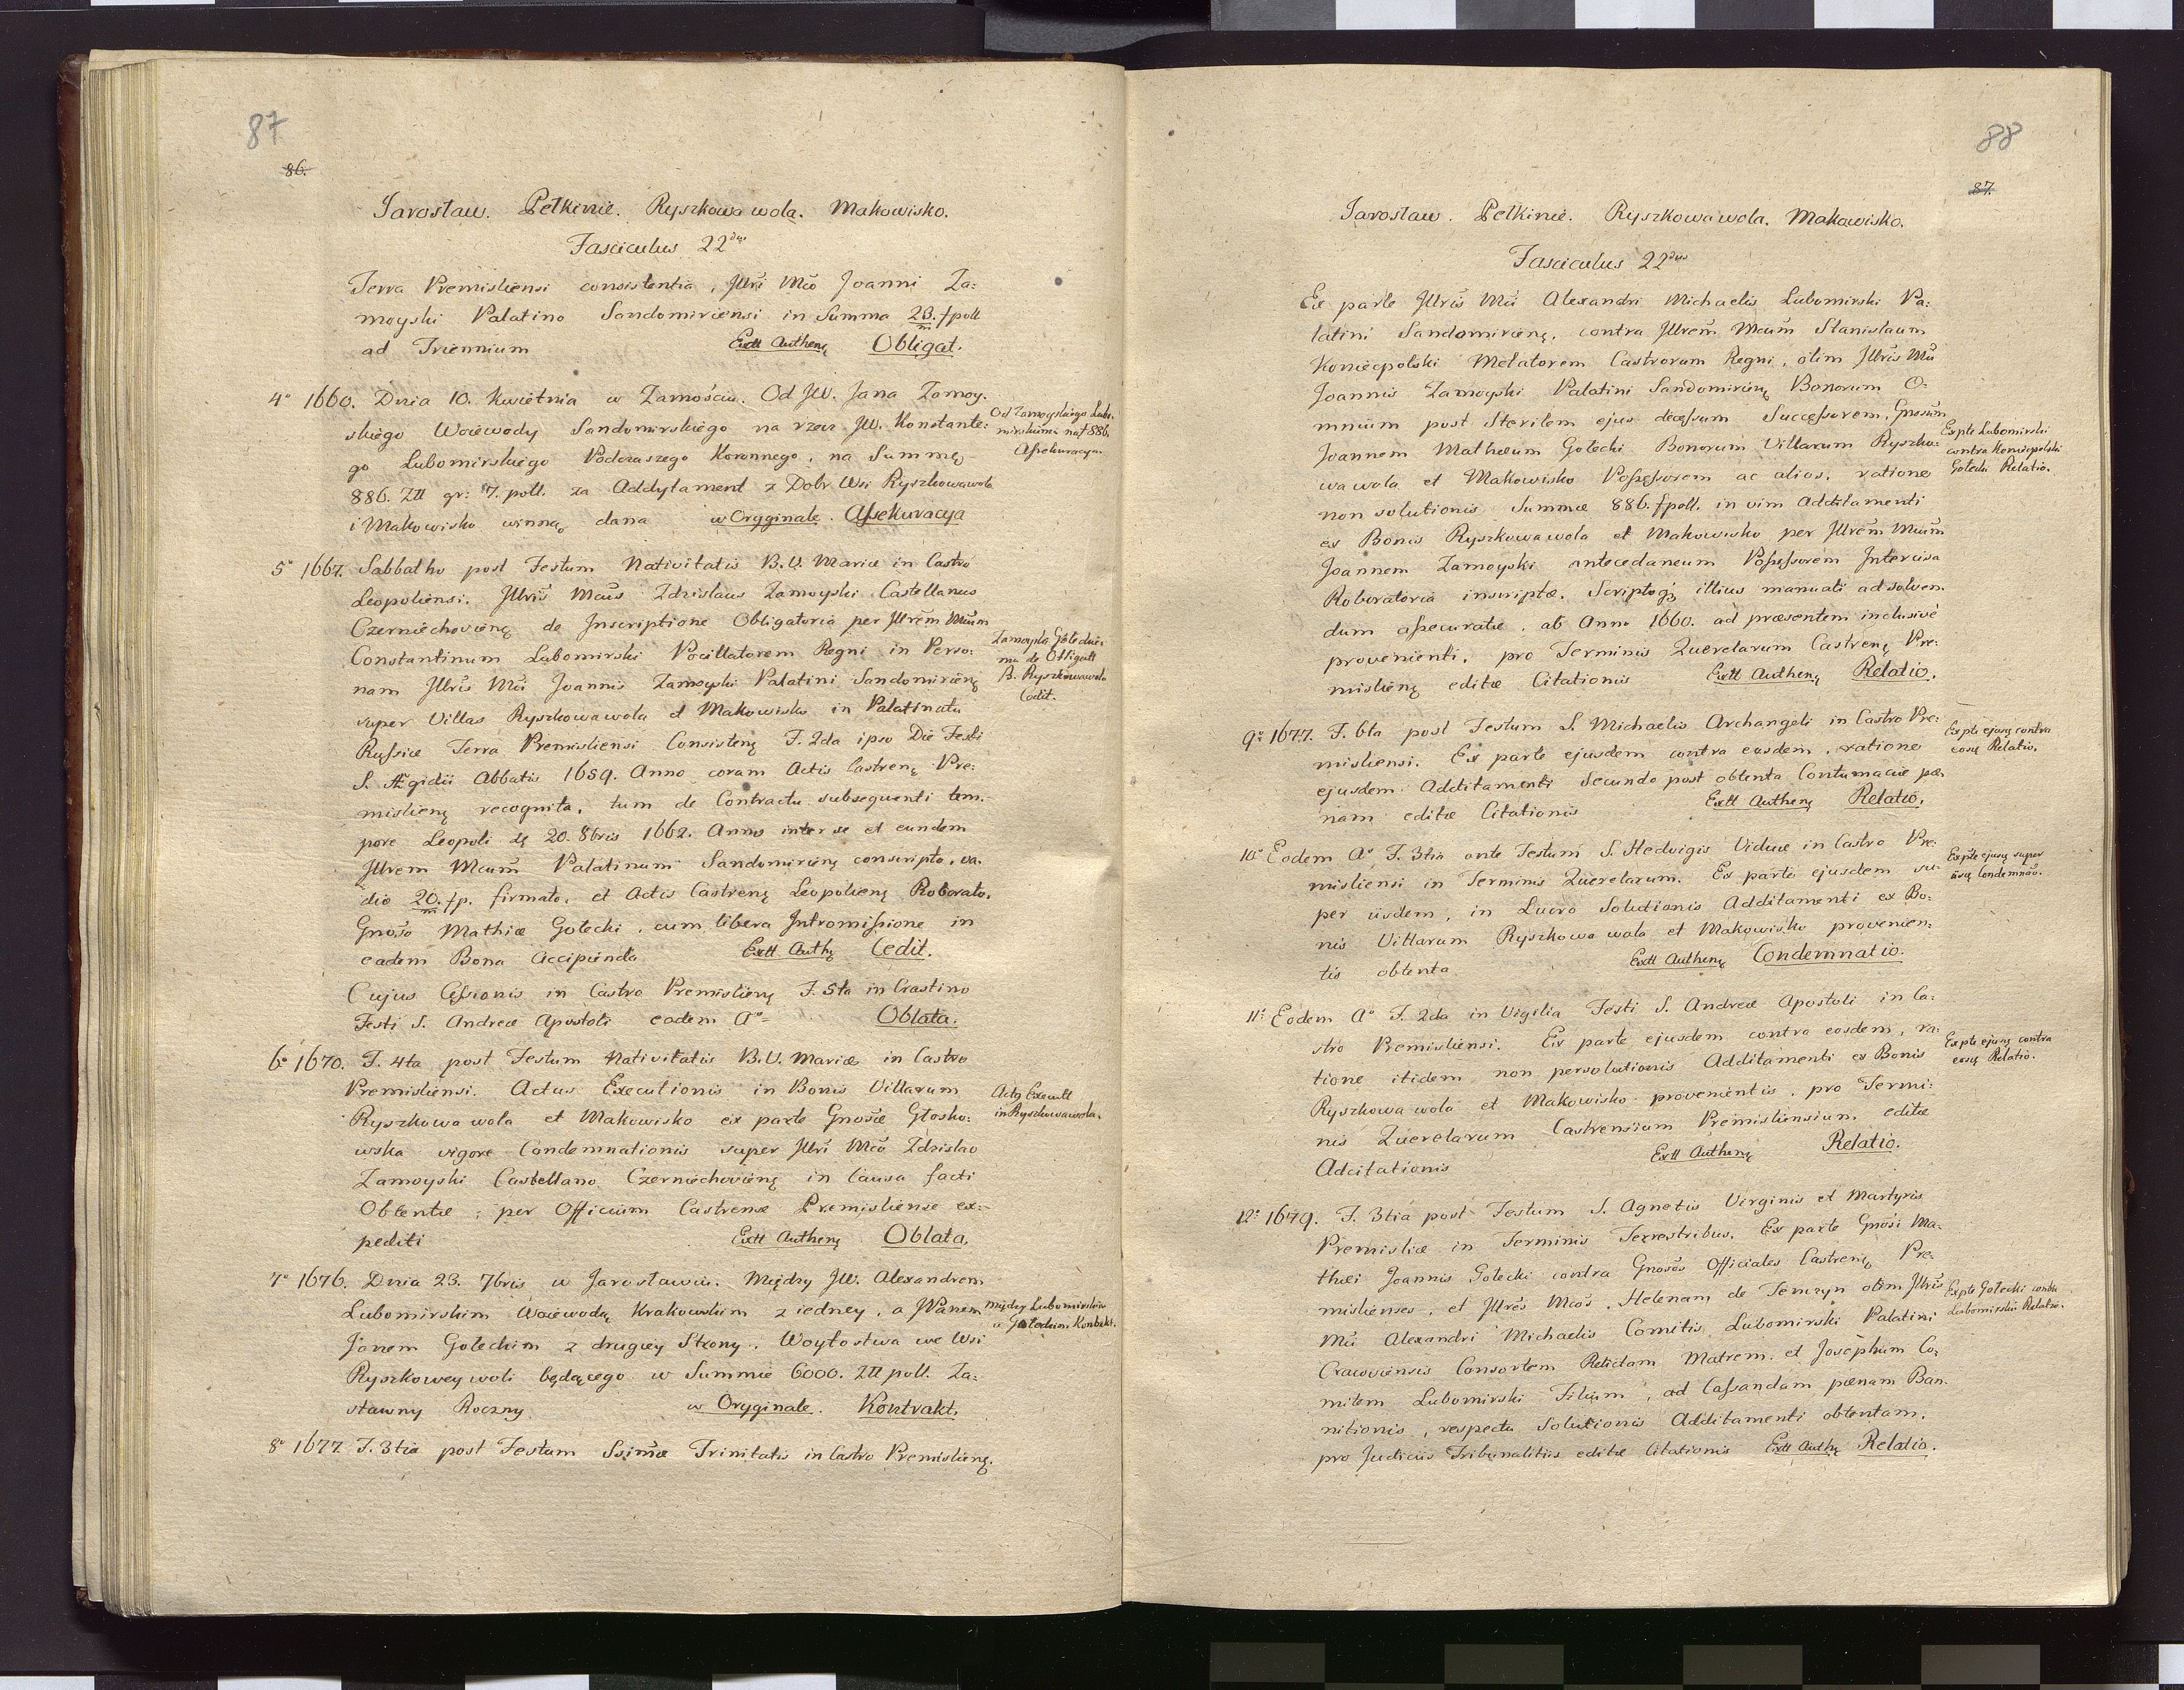 87
86.
Jarosław. Pełkinie. Ryszkowa wola. Makowisko.
Fasciculus 22dus
Terra Premisliensi consistentia, Jllri Mco Joanni Za:
moyski Palatino Sandomiriensi in Summa 23. f poll
ad Triennium Extt Autheng Obligat.
4° 1660. Dnia 10. Kwietnia w Zamościu. Od JW. Jana Zamoy.
skiego Woiewody Sandomirskiego na rzecz JW. Konstante:
go Lubomirskiego Podczaszego Koronnego, na Summę
886. Zll gr: 7. poll. za Addytament z Dobr Wsi Ryszkowawola
i Makowisko winną dana w Oryginale. Assekuracya
Od Zamoyskiego Lubo:
mirskiemu na f 886.
Assekuracya.
5° 1667. Sabbatho post Festum Nativitatis B.V. Mariæ in Castro
Leopoliensi. Jllris Mcus Zdzislaus Zamoyski Castellanus
Czerniechovieng de Inscriptione Obligatoria per Jllrem Mcum
Constantinum Lubomirski Pocillatorem Regni in Perso:
nam Jllris Mci Joannis Zamoyski Palatini Sandomirieng
super Villas Ryszkowawola et Makowisko in Palatinatu
Russiæ Terra Premisliensi Consisteng F. 2da ipso Die Festi
S. Ægidii Abbatis 1659. Anno coram Actis Castreng Pre:
mislieng recognita, tum de Contractu subsequenti tem:
pore Leopoli 20. 8bris 1662. Anno inter se et eundem
Jllrem Mcum Palatinum Sandomirieng conscripto, va.
dio 20. fp. firmato, et Actis Castreng Leopolieng Roborato.
Gnoso Mathiæ Gołecki, cum libera Intromissione in
eadem Bona Accipienda Extt Authg Cedit.
Zamoyski Gołeckie:
mu de Obligatt
B. Ryszkowawola
Cedit.
Cujus Cessionis in Castro Premislieng F. 5ta in Crastino
Festi S. Andreæ Apostoli eodem A°= Oblata.
6° 1670. F. 4ta post Festum Nativitatis B.V. Mariæ in Castro
Premisliensi. Actus Executionis in Bonis Villarum
Ryszkowa wola et Makowisko ex parte Gnosæ Głosko:
wska vigore Condemnationis super Jllri Mco Zdzislao
Zamoyski Castellano Czerniechovieng in Causa facti
Obtentæ, per Officium Castrense Premisliense ex:
pediti Extt Autheng Oblata.
Actg Executt
in Ryszkowawola.
7° 1676. Dnia 23. 7bris w Jarosławiu. Między JW. Alexandrem
Lubomirskim Woiewodą Krakowskim z iedney, a JPanem
Janem Gołeckim z drugiey Strony. Woytostwa we Wsi
Ryszkowey woli będącego w Summie 6000. Zll poll. Za:
stawny Roczny w Oryginale. Kontrakt.
między Lubomirskim
a Gołeckim Kontrakt.
8° 1677. F. 3tia post Festum Ssimæ Trinitatis in Castro Premislieng.
88
87.
Jarosław. Pełkinie. Ryszkowa wola. Makowisko.
Fasciculus 22dus
Ex parte Jllris Mci Alexandri Michaelis Lubomirski Pa:
latini Sandomirieng, contra Jllrem Mcum Stanislaum
Koniecpolski Metatorem Castrorum Regni, olim Jllris Mci
Joannis Zamoyski Palatini Sandomirieng Bonorum O:
mnium post Sterilem ejus decessum Successorem, Gnosum
Joannem Mathæum Gołecki Bonorum Villarum Ryszko:
wa wola et Makowisko Possessorem ac alios, ratione
non solutionis Summæ 886. f poll. in vim Additamenti
ex Bonis Ryszkowa wola et Makowisko per Jllrem Mcum
Joannem Zamoyski antecedaneum Possessorem Intercisa
Roboratoria inscriptæ, Scriptoq3 illius manuali ad solven.
dum assecuratæ, ab Anno 1660. ad præsentem inclusive
provenienti, pro Terminis Querelarum Castreng Pre:
mislieng editæ Citationis Extt Autheng Relatio.
Ex pte Lubomirski
contra Koniecpolski
Gołecki Relatio.
9° 1677. F. 6ta post Festum S. Michaelis Archangeli in Castro Pre:
misliensi. Ex parte ejusdem contra eosdem, ratione
ejusdem Additamenti Secundo post obtenta Contumaciæ pæ.
nam editæ Citationis Extt Autheng Relatio.
Ex pte ejusg contra
eosg Relatio.
10° Eodem A° F. 3tia ante Festum S. Hedvigis Viduæ in Castro Pre:
misliensi in Terminis Querelarum. Ex parte ejusdem su:
per iisdem, in Lucro Solutionis Additamenti ex Bo:
nis Villarum Ryszkowa wola et Makowisko provenien:
tis obtenta Extt Autheng Condemnatio.
Ex pte ejusg super
iisg Condemnão.
11° Eodem A° F. 2da in Vigilia Festi S. Andreæ Apostoli in Ca:
stro Premisliensi. Ex parte ejusdem contra eosdem, ra:
tione itidem non persolutionis Additamenti ex Bonis
Ryszkowa wola et Makowisko provenientis, pro Termi:
nis Querelarum Castrensium Premisliensium. editæ
Adcitationis Extt Autheng Relatio.
Ex pte ejusg contra
eosg Relatio.
12° 1679. F. 3tia post Festum S. Agnetis Virginis et Martyris
Premisliæ in Terminis Terrestribus. Ex parte Gnosi Ma:
thæi Joannis Gołecki contra Gnosos Officiales Castreng Pre:
mislienses, et Jllres Mcos, Helenam de Tenczyn olim Jllris
Mci Alexandri Michaelis Comitis Lubomirski Palatini
Cracoviensis Consortem Relictam Matrem, et Josephum Co:
mitem Lubomirski Filium, ad Cassandam pænam Ban.
nitionis, respectu Solutionis Additamenti obtentam,
pro Judiciis Tribunalitiis editæ Citationis Extt Authg Relatio.
Ex pte Gołecki contra
Lubomirskie Relatio.